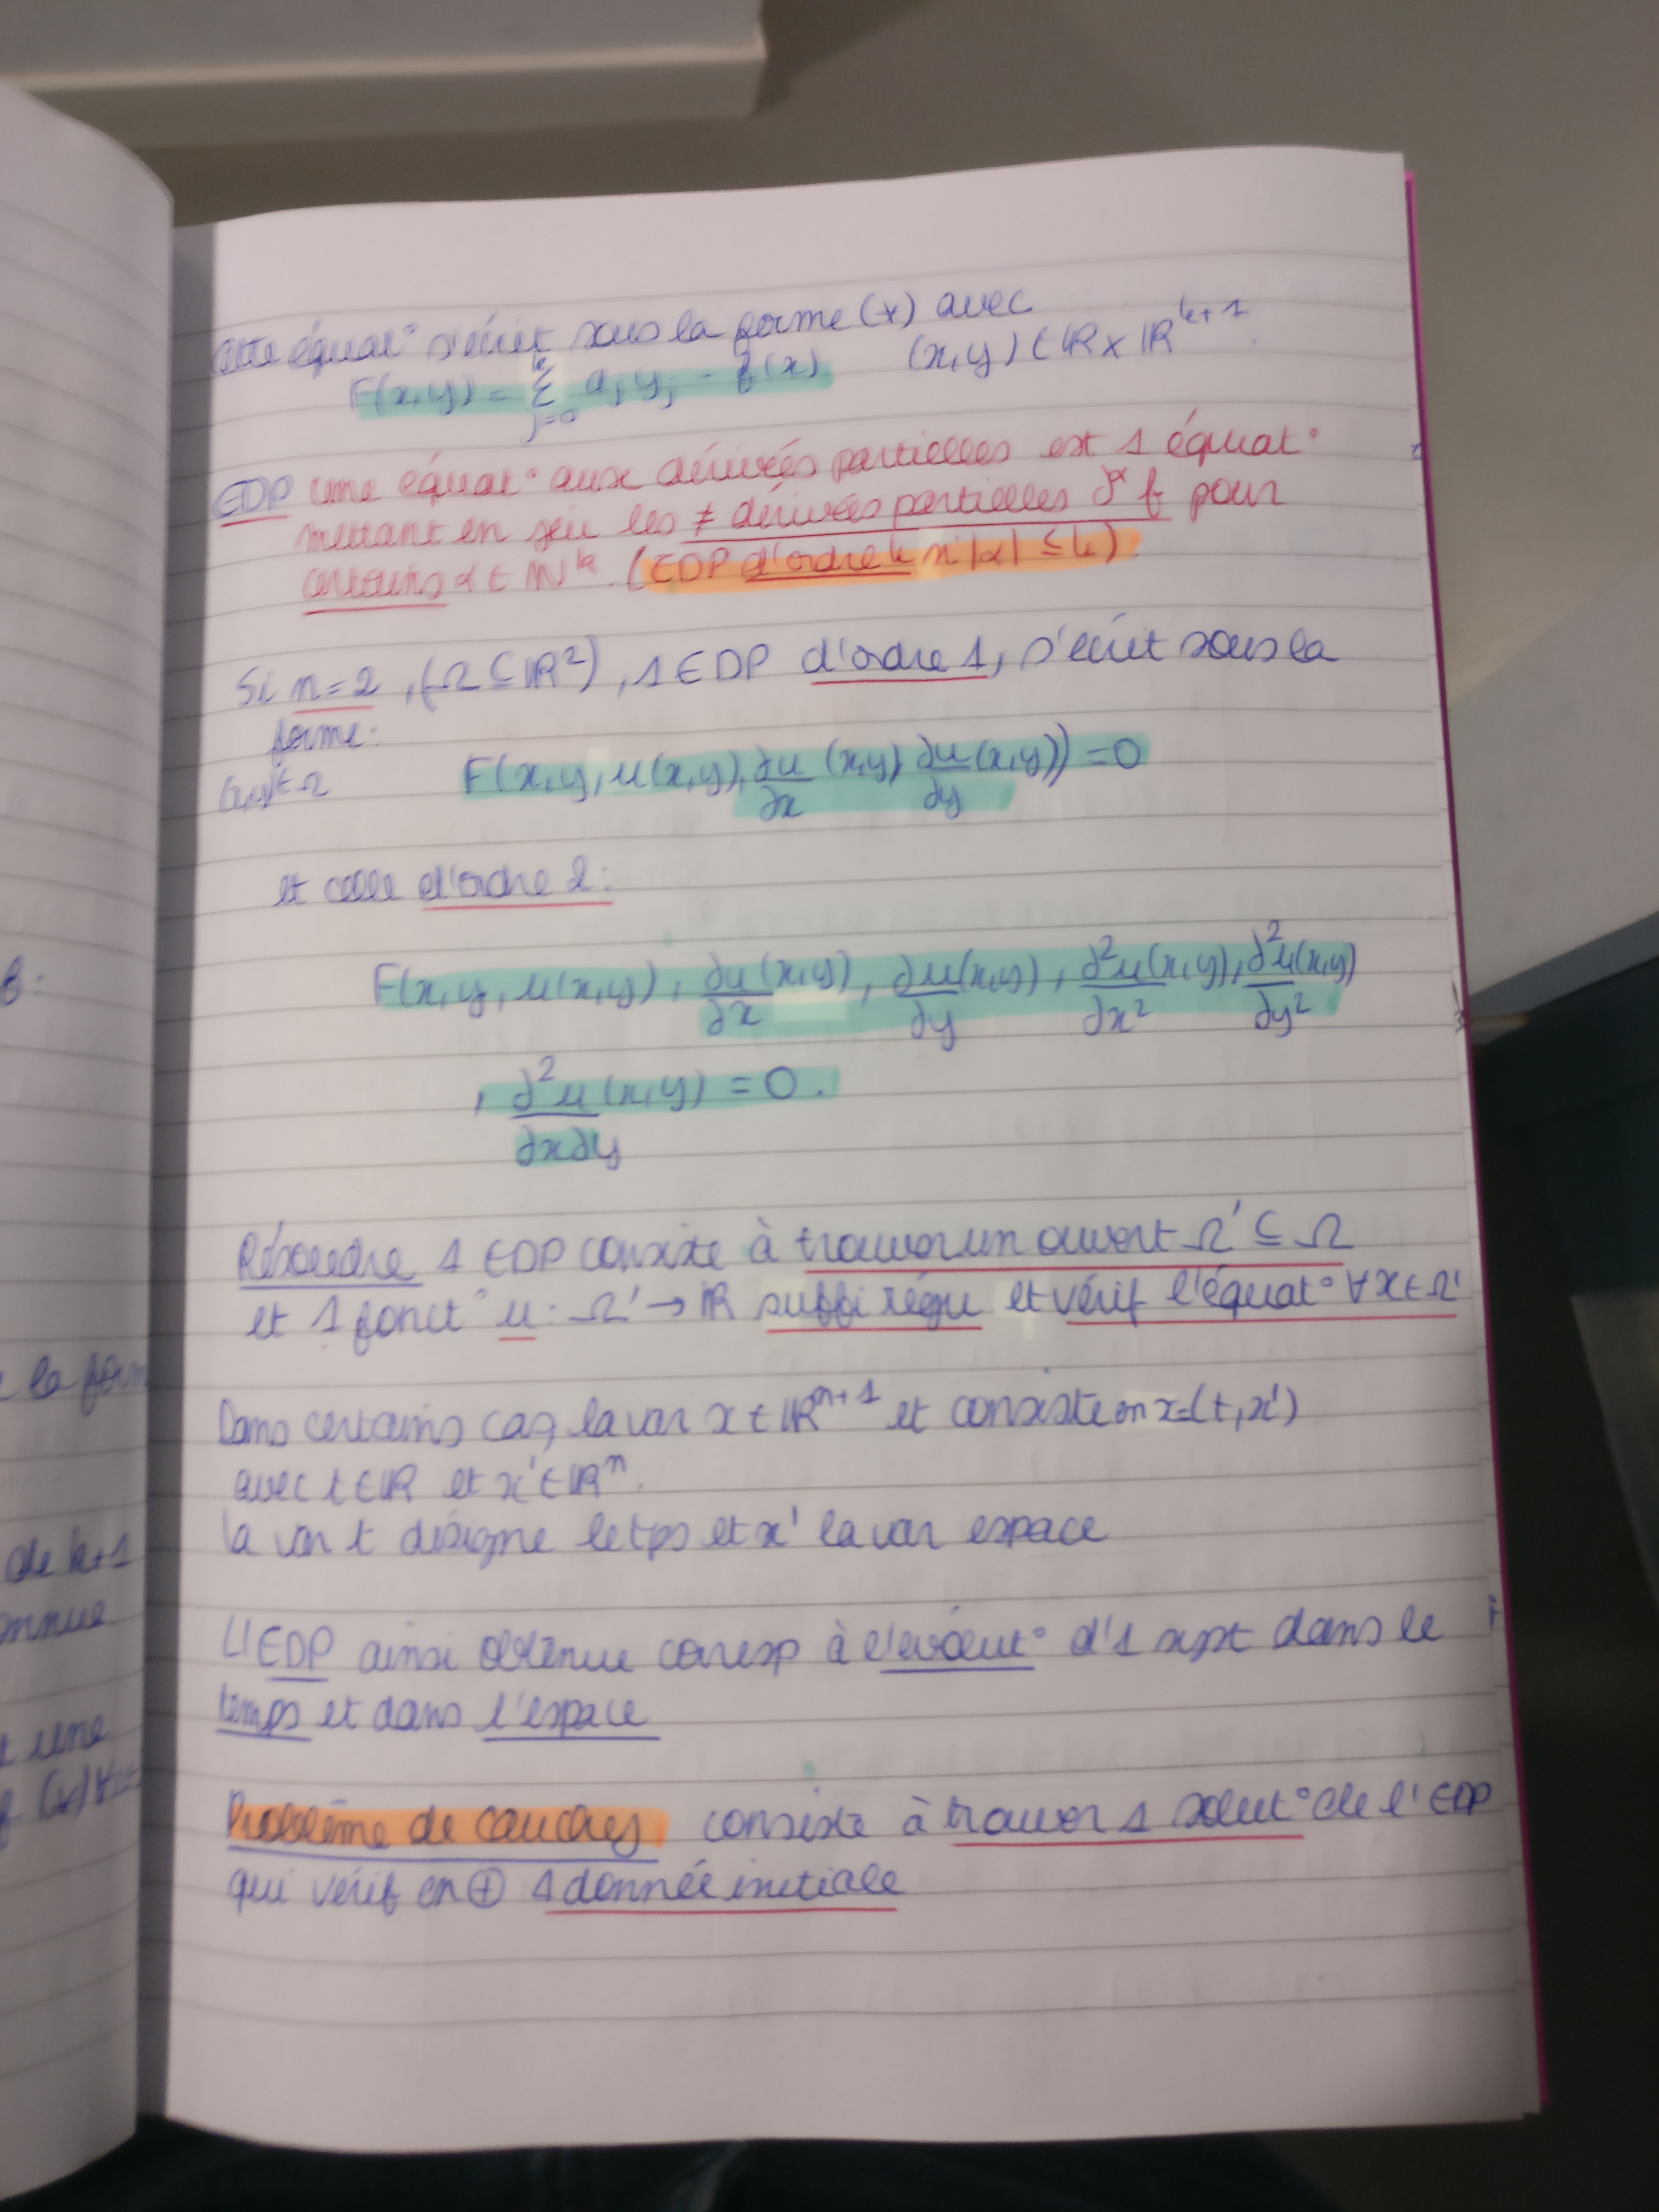 Cette équat° s'écrit sous la forme (*) avec
F(x,y) = Σ_{j=0}^{k} a_j y_j - f(x)    (x,y) ∈ ℝ × ℝ^{k+1}.
EDP une équat° aux dérivées partielles est 1 équat°
mettant en jeu les ≠ dérivées partielles ∂^α f pour
certains α ∈ ℕ^k. (EDP d'ordre k si |α| ≤ k).
Si n=2, (Ω ⊆ ℝ²), 1 EDP d'ordre 1, s'écrit sous la
forme:
(x,y) ∈ Ω    F(x,y, u(x,y), ∂u/∂x (x,y) ∂u/∂y (x,y)) = 0
et celle d'ordre 2:
F(x,y, u(x,y), ∂u/∂x (x,y), ∂u/∂y (x,y), ∂²u/∂x² (x,y), ∂²u/∂y² (x,y)
, ∂²u/∂x∂y (x,y) = 0.
Résoudre 1 EDP consiste à trouver un ouvert Ω' ⊆ Ω
et 1 fonct° u : Ω' → ℝ suffi régu et vérif l'équat° ∀x ∈ Ω'
Dans certains cas, la var x ∈ ℝ^{n+1} et consiste en x=(t,x')
avec t ∈ ℝ et x' ∈ ℝ^n.
la var t désigne le tps et x' la var espace
L'EDP ainsi obtenue corresp à l'évolut° d'1 syst dans le
temps et dans l'espace
Problème de Cauchy consiste à trouver 1 solut° de l'EDP
qui vérif en ⊕ 1 donnée initiale
la form
de k+1
une